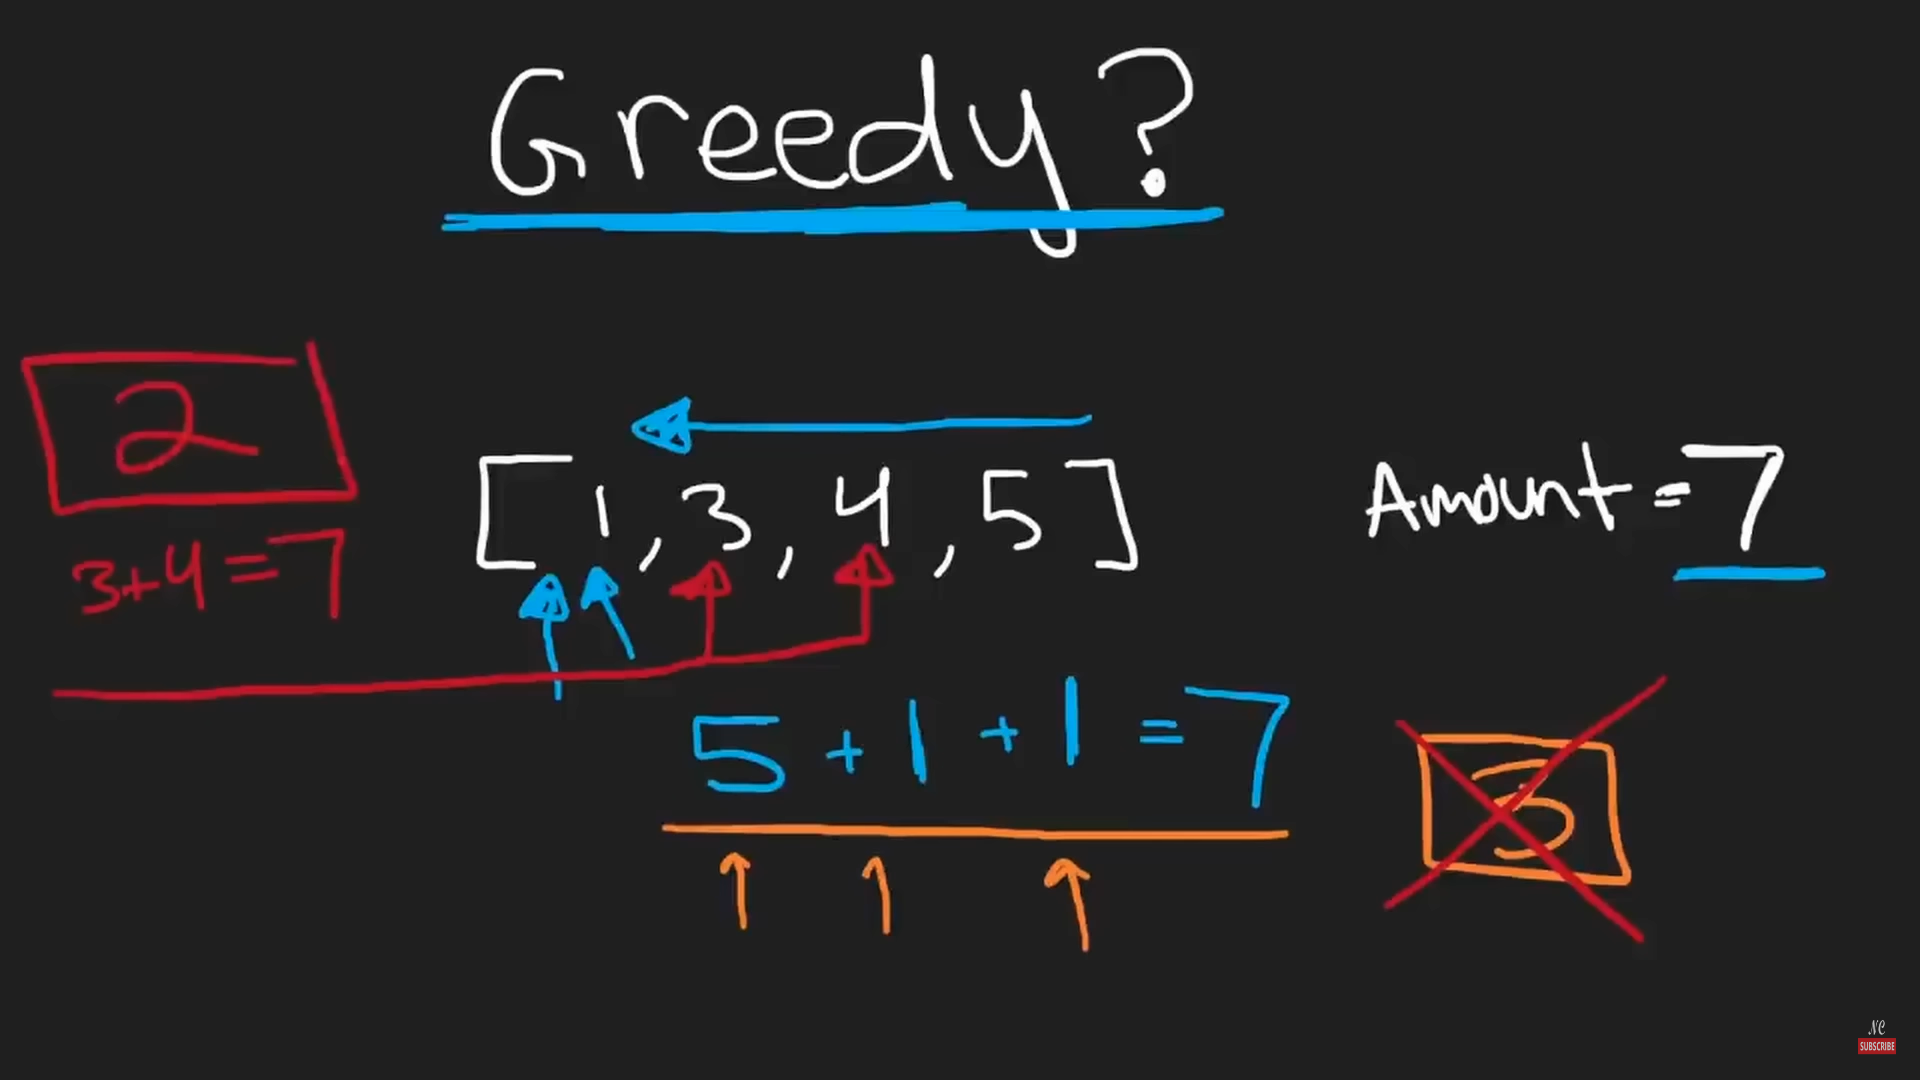 Greedy?
2
3+4=7
[1, 3, 4, 5]
Amount = 7
5 + 1 + 1 = 7
3
NC
SUBSCRIBE